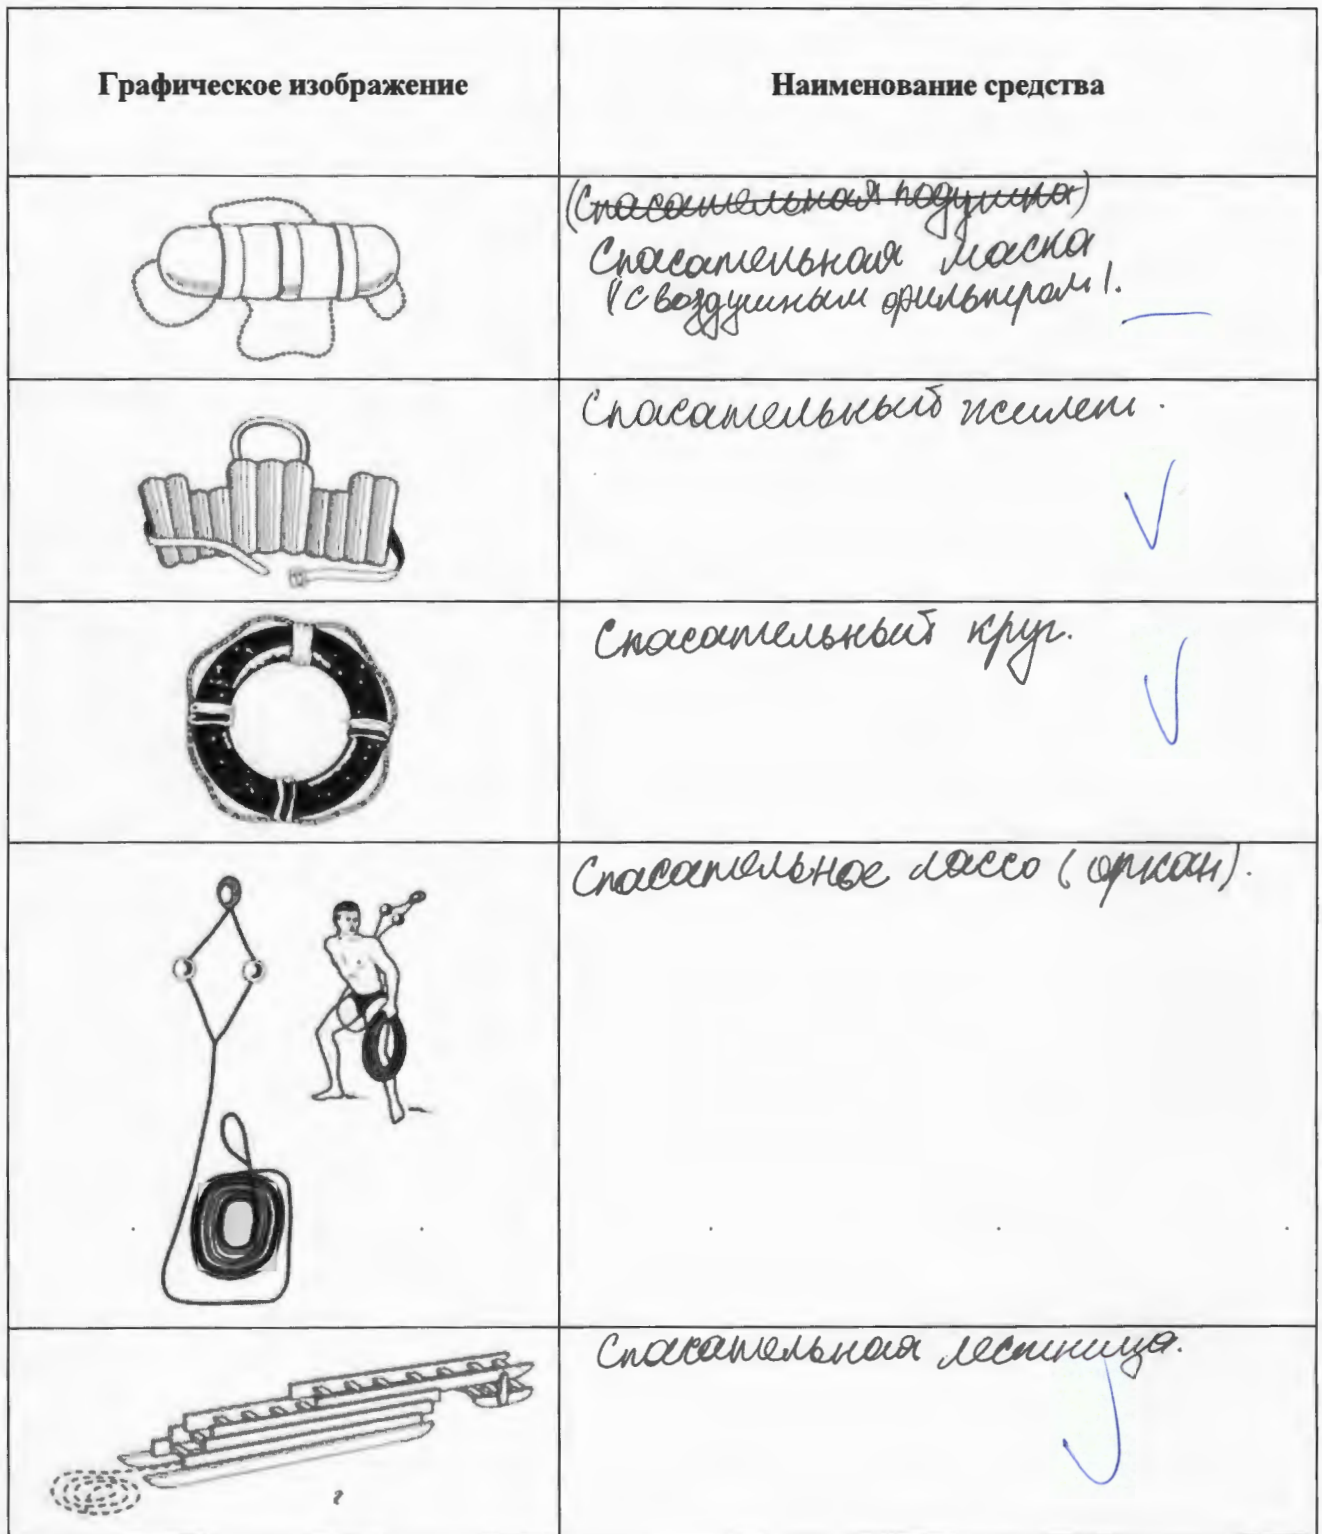 Графическое изображение
Наименование средства
(Спасательная подушка)
Спасательная маска
(с воздушным фильтром).
Спасательный жилет.
Спасательный круг.
Спасательное лассо (аркан).
Спасательная лестница.
г